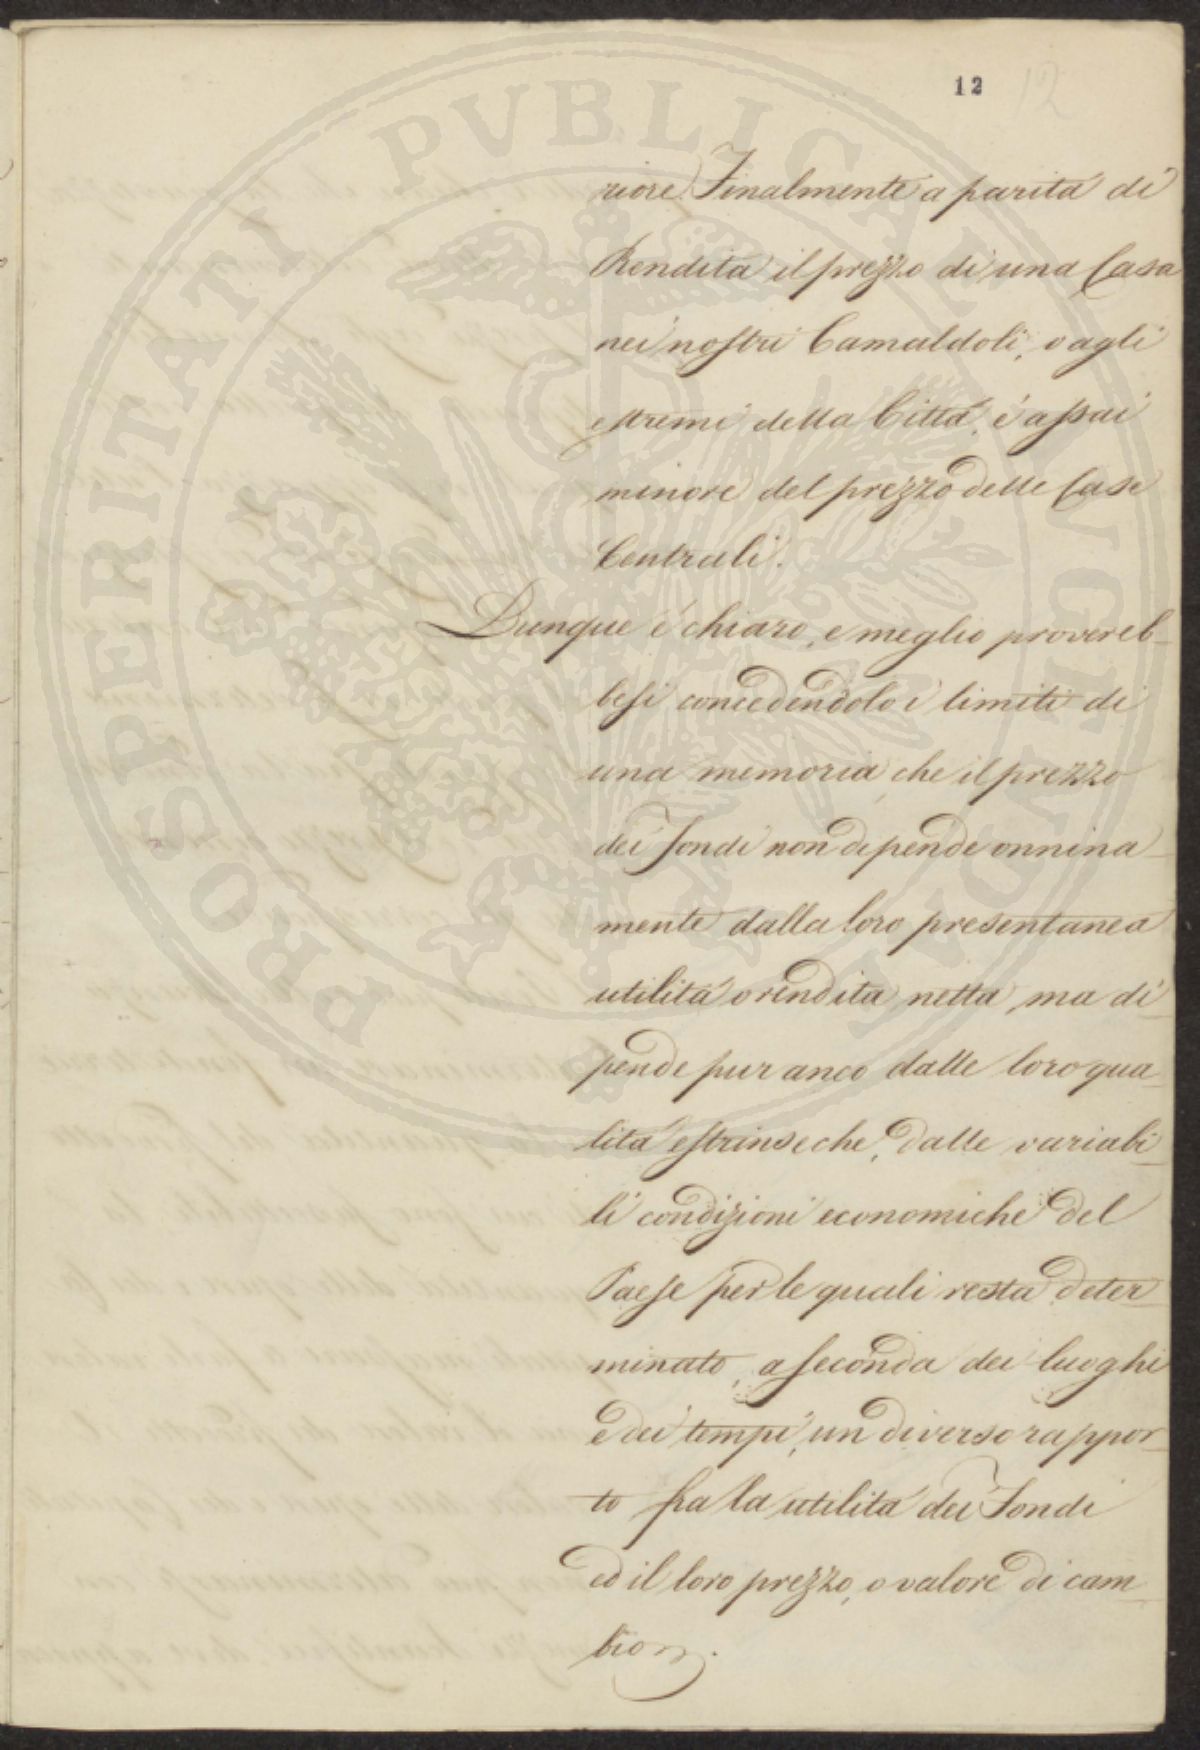 12 12
riore. Finalmente a parità di
Rendita il prezzo di una Casa
nei nostri Camaldoli, o agli
estremi della Città, è assai
minore del prezzo delle Case
Centrali.
Dunque è chiaro, e meglio provereb-
besi concedendolo i limiti di
una memoria, che il prezzo
dei fondi non dipende onnina-
mente dalla loro presentanea
utilità o rendita netta, ma di-
pende pur anco dalle loro qua-
lità estrinseche, dalle variabi-
li condizioni economiche del
Paese per le quali resta deter-
minato, a seconda dei luoghi
e dei tempi, un diverso rappor-
to fra la utilità dei Fondi
ed il loro prezzo, o valore di cam-
bio.
PROSPERITATI PVBLICAE AVGENDAE